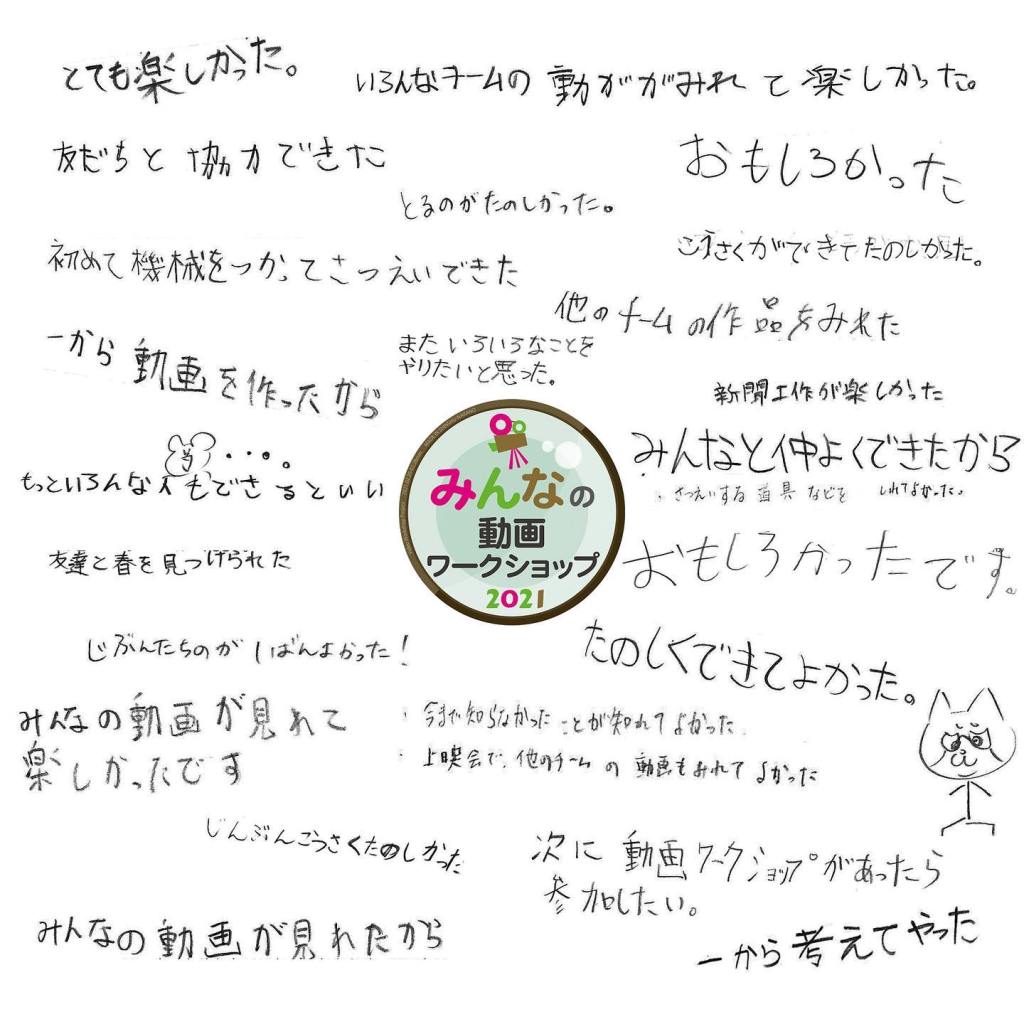 とても楽しかった。
いろんなチームの動ががみれて楽しかった。
友だちと協力できた
おもしろかった
とるのがたのしかった。
こうさくができてたのしかった。
初めて機械をつかってさつえいできた
他のチームの作品をみれた
一から動画を作ったから
またいろいろなことを
やりたいと思った。
新聞工作が楽しかった
みんなと仲よくできたから
・・・。
もっといろんな もできるといい
・さつえいする道具などを しれてよかった。
みんなの
動画
ワークショップ
2021
友達と春を見つけられた
おもしろかったです。
じぶんたちのが1ばんよかった!
たのしくできてよかった。
みんなの動画が見れて
楽しかったです
・今まで知らなかったことが知れてよかった
・上映会で、他のチームの動画もみれてよかった
しんぶんこうさくたのしかった
次に動画ワークショップがあったら
参加したい。
みんなの動画が見れたから
一から考えてやった